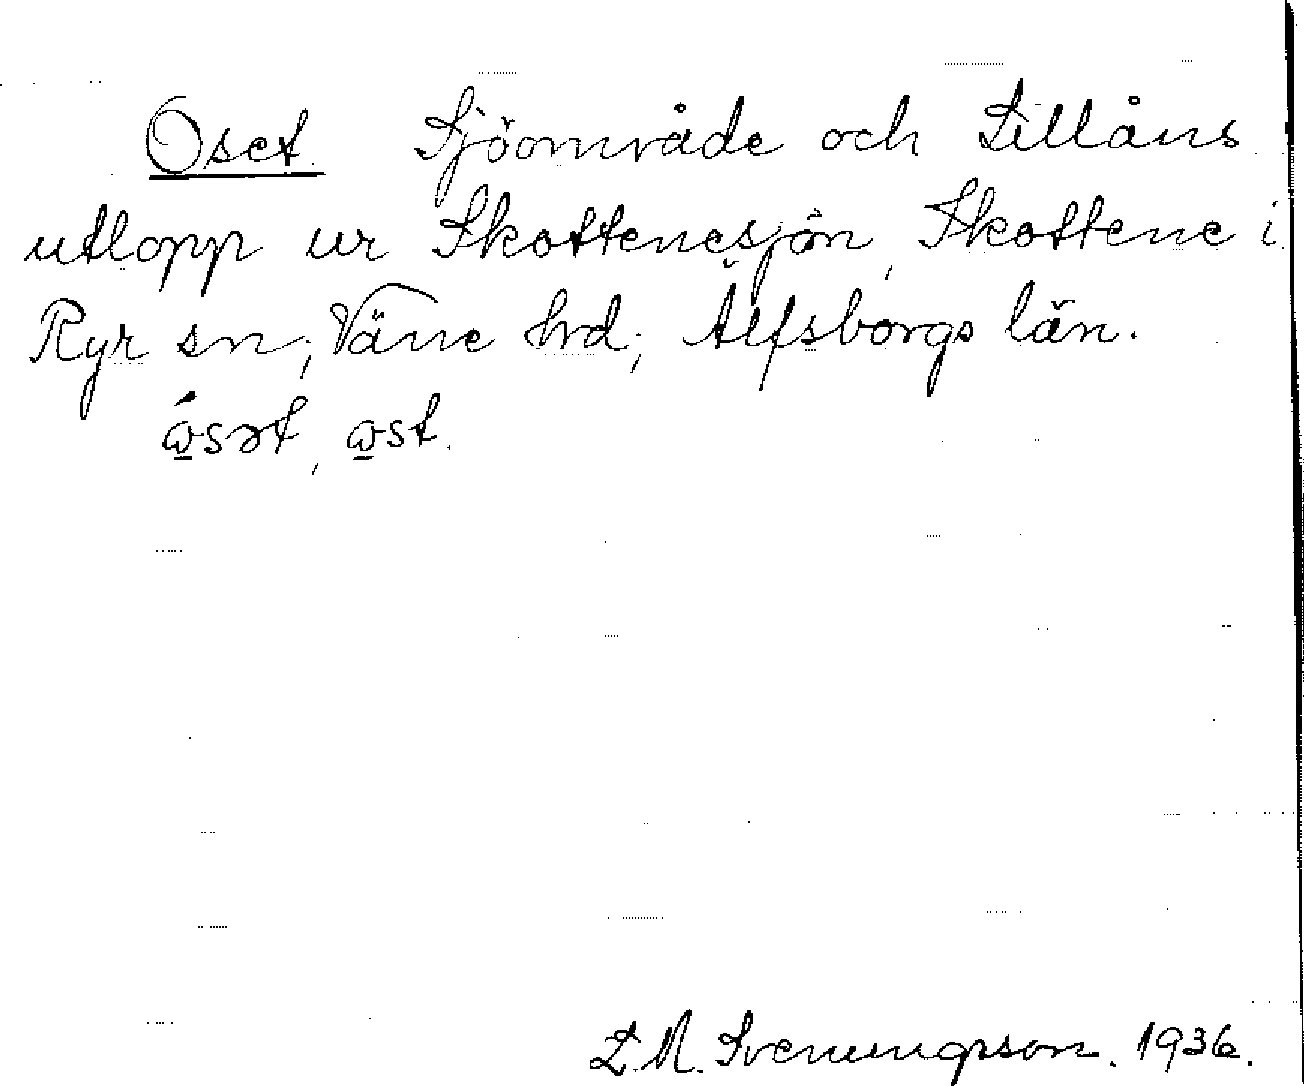 Oset. Sjöområde och Lillåns
utlopp ur Skottenesjön, Skottene i
Ryr sn; Väne hrd; Älfsborgs län.
ɷ́sət, ɷst.
L. M. Svenungsson. 1936.